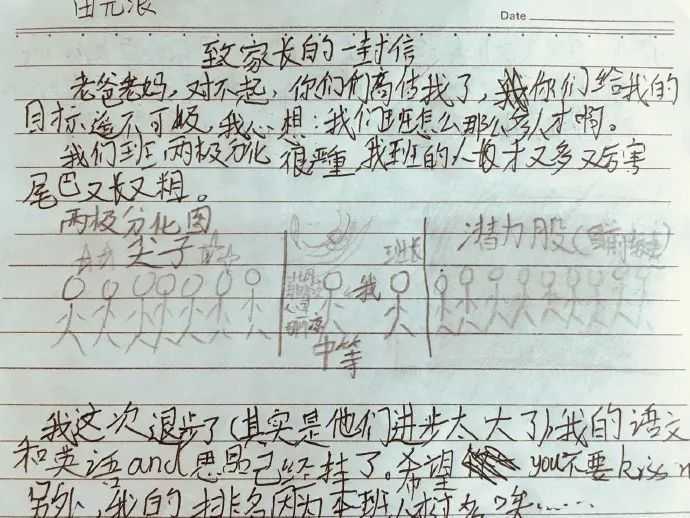 田元浪
Date
致家长的一封信
老爸老妈，对不起，你们们高估我了，我你们给我的
目标遥不可及，我心想：我们班怎么那么多人才啊。
我们班两极分化很严重，我班的人才又多又厉害
尾巴又长又粗。
两极分化图
尖子
班长
潜力股(目前
我
中等
我这次退步了(其实是他们进步太大了)我的语文
和英语and思品已经挂了。希望 you不要kiss m
另外，我的排名因为本班人才过多 唉……